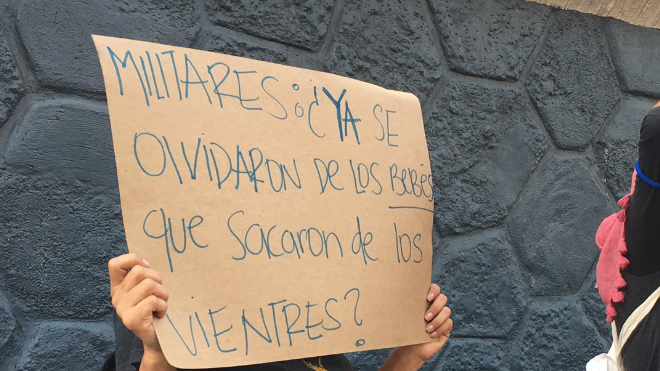 MILITARES: ¿YA SE
OLVIDARON DE LOS BEBÉS
que sacaron de los
VIENTRES?